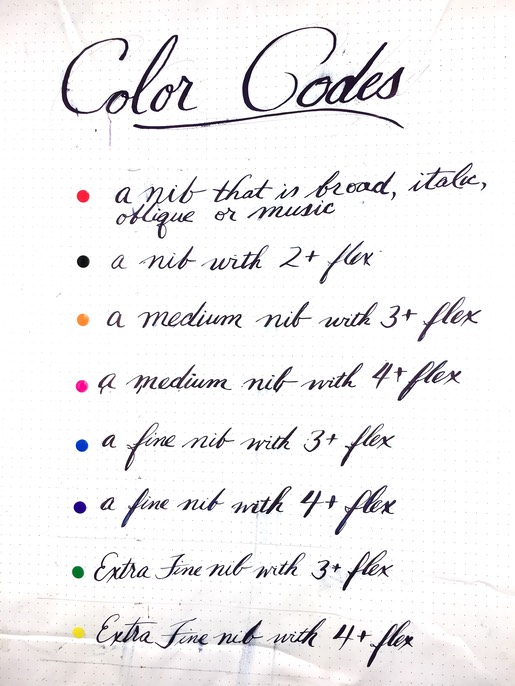 Color Codes
a nib that is broad, italic,
oblique or music
a nib with 2+ flex
a medium nib with 3+ flex
a medium nib with 4+ flex
a fine nib with 3+ flex
a fine nib with 4+ flex
Extra Fine nib with 3+ flex
Extra Fine nib with 4+ flex